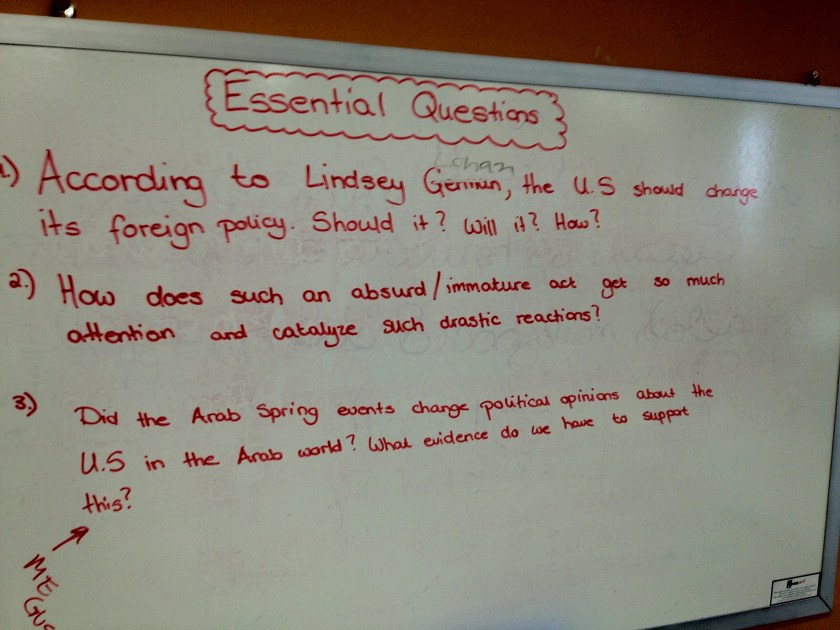 Essential Questions
Lohan
1.) According to Lindsey German, the U.S should change
its foreign policy. Should it? Will it? How?
2.) How does such an absurd/immature act get so much
attention and catalyze such drastic reactions?
3.) Did the Arab Spring events change political opinions about the
U.S in the Arab world? What evidence do we have to support
this?
ME
GUS